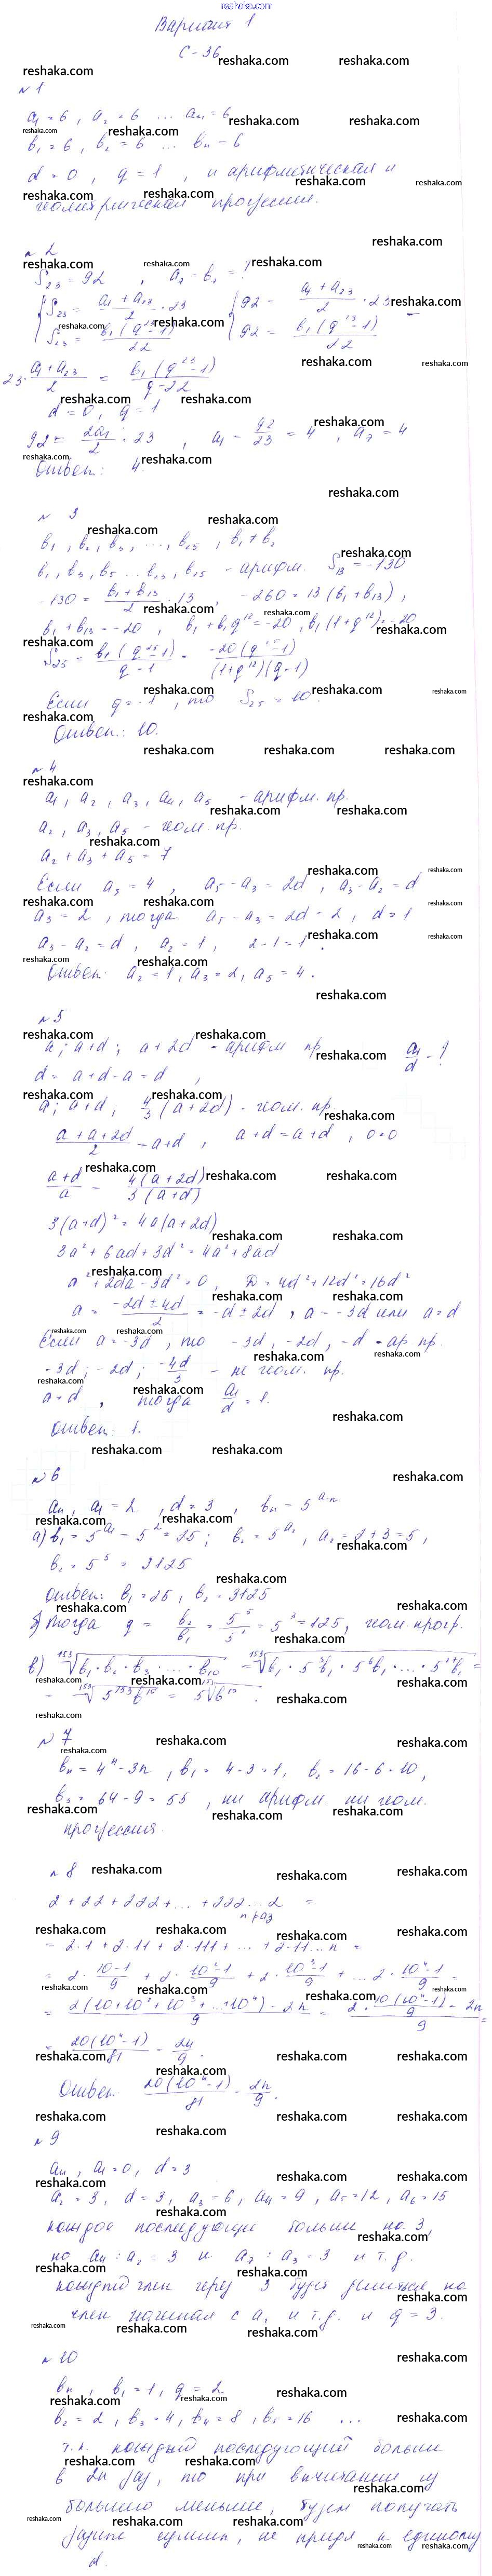 reshaka.com
Вариант 1
С-36
№1
a₁ = 6, a₂ = 6 ... aₙ = 6
b₁ = 6, b₂ = 6 ... bₙ = 6
d = 0, q = 1, и арифметическая и
геометрическая прогрессия.
№2
S₂₃ = 92, a₇ = b₇ = ?
S₂₃ = (a₁ + a₂₃)/2 · 23
92 = (a₁ + a₂₃)/2 · 23
d = 0, q = 1
92 = 2a₁/2 · 23, a₁ = 92/23 = 4, a₇ = 4
Ответ: 4.
№3
b₁, b₂, b₃, ..., b₂₅, b₁ + b₂
b₁, b₃, b₅ ... b₂₃, b₂₅ - арифм. S₁₃ = -130
-130 = (b₁ + b₁₃)/2 · 13, -260 = 13(b₁ + b₁₃),
b₁ + b₁₃ = -20, b₁ + b₁q¹² = -20, b₁(1+q¹²) = -20
Если q = -1, то S₂₅ = 10
Ответ: 10.
№4
a₁, a₂, a₃, a₄, a₅ - арифм. пр.
a₂, a₃, a₅ - геом. пр.
a₂ + a₃ + a₅ = 7
Если a₅ = 4, a₅ - a₃ = 2d, a₃ - a₂ = d
a₃ = 2, тогда a₅ - a₃ = 2d = 2, d = 1
a₃ - a₂ = d, a₂ = 1, 2 - 1 = 1.
Ответ: a₂ = 1, a₃ = 2, a₅ = 4.
№5
a; a+d; a+2d - арифм пр. a₁/d - ?
d = a + d - a = d,
a; a+d; 4/3 (a+2d) - геом. пр.
(a + a + 2d)/2 = a+d, a+d = a+d, 0=0
(a+d)/a = 4(a+2d)/3(a+d)
3(a+d)² = 4a(a+2d)
3a² + 6ad + 3d² = 4a² + 8ad
a² + 2da - 3d² = 0, D = 4d² + 12d² = 16d²
a = (-2d ± 4d)/2 = -d ± 2d, a = -3d или a = d
Если a = -3d, то -3d, -2d, -d - ар пр.
-3d; -2d; -4d/3 - не геом. пр.
a = d, тогда a₁/d = 1.
Ответ: 1.
№6
aₙ, a₁ = 2, d = 3, bₙ = 5^aₙ
а) b₁ = 5^a₁ = 5² = 25; b₂ = 5^a₂, a₂ = 2 + 3 = 5,
b₂ = 5⁵ = 3125
Ответ: b₁ = 25, b₂ = 3125
б) Тогда q = b₂/b₁ = 5⁵/5² = 5³ = 125, геом прогр.
в) ¹⁵³√(b₁ · b₂ · b₃ · ... · b₁₀) = ¹⁵³√(b₁ · 5³b₁ · 5⁶b₁ · ... · 5²⁷b₁) =
№7
bₙ = 4ⁿ - 3n, b₁ = 4 - 3 = 1, b₂ = 16 - 6 = 10,
b₃ = 64 - 9 = 55, ни арифм. ни геом.
прогрессия.
№8
2 + 22 + 222 + ... + 222...2 =
n раз
= 2·1 + 2·11 + 2·111 + ... + 2·11...n =
= 2 · (10-1)/9 + 2 · (10²-1)/9 + 2 · (10³-1)/9 + ... 2 · (10ⁿ-1)/9 =
= (2(10+10²+10³+...+10ⁿ) - 2n)/9 = (2 · 10(10ⁿ-1)/9 - 2n)/9 =
= 20(10ⁿ-1)/81 - 2n/9.
Ответ: 20(10ⁿ-1)/81 - 2n/9.
№9
aₙ, a₁ = 0, d = 3
a₂ = 3, d = 3, a₃ = 6, a₄ = 9, a₅ = 12, a₆ = 15
каждое последующие больше на 3,
но a₄ : a₂ = 3 и a₇ : a₃ = 3 и т.д.
каждый член через 3 будет делиться на
член начиная с a₂ и т.д. и q = 3.
№10
bₙ, b₁ = 1, q = 2
b₂ = 2, b₃ = 4, b₄ = 8, b₅ = 16 ...
т.к. каждый последующий больше
в 2n раз, то при вычитании из
большего меньшие, будем получать
разные суммы, не придя к единому
d.